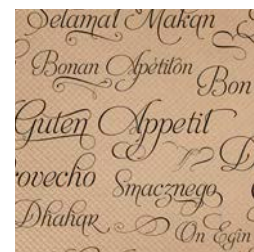 Selamat Makan
Bonan Apétitôn
Bon
Guten Appetit
D
rovecho
Smacznego
Dhahar
On Egin